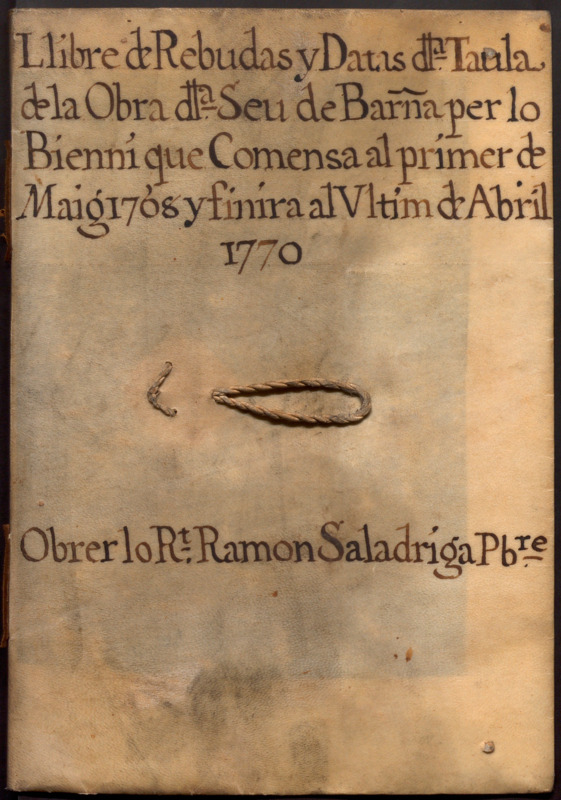 Llibre de Rebudas y Datas dlla. Taula
de la Obra dlla. Seu de Barña per lo
Bienni que Comensa al primer de
Maig 1768 y finira al Vltim de Abril
1770
Obrer lo Rt. Ramon Saladriga Pbre